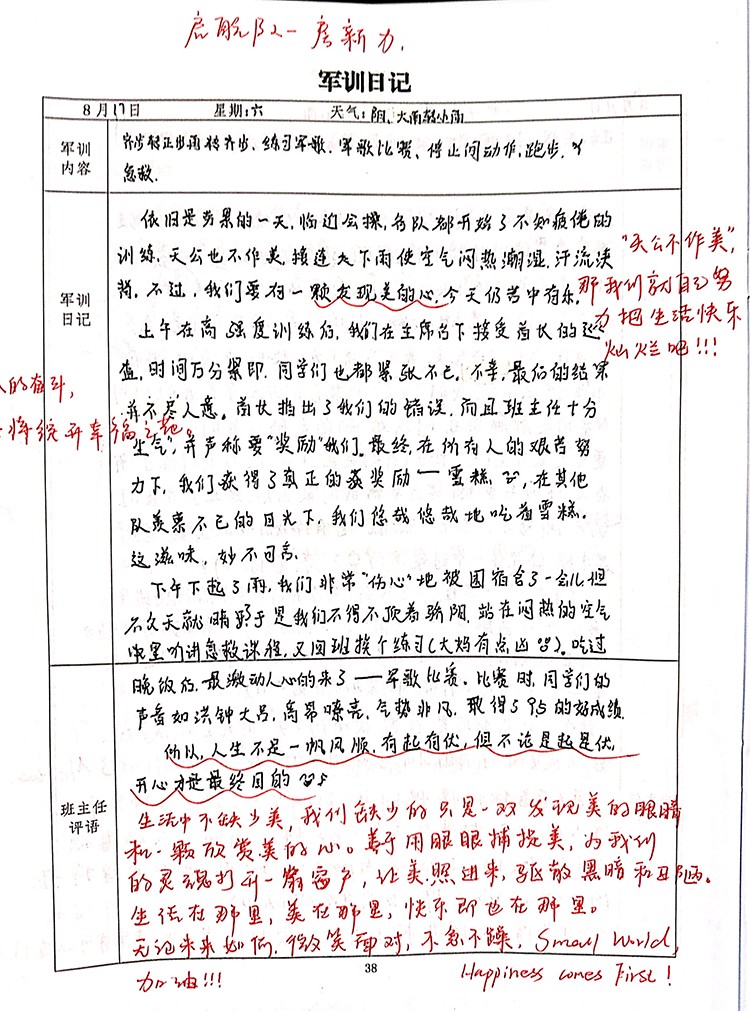 军训日记
8月17日 星期:六 天气:阴、大雨转小雨
军训
内容
齐步转正步再转齐步、练习军歌、军歌比赛、停止间动作、跑步、
急救.
军训
日记
依旧是劳累的一天,临近会操,各队都开始了不知疲倦的
训练,天公也不作美,接连 下雨使空气闷热潮湿,汗流浃
背,不过,我们要有一颗发现美的心,今天仍苦中有乐.
上午在高强度训练后,我们在主席台下接受首长的巡
查,时间万分紧即,同学们也都紧张不已.不幸,最后的结果
并不尽人意。首长指出了我们的错误,而且班主任十分
"生气",并声称要"奖励"我们.最终,在所有人的艰苦努
力下,我们获得了真正的奖励——雪糕,在其他
队羡慕不已的目光下,我们悠哉悠哉地吃着雪糕。
这滋味,妙不可言.
下午下起了雨,我们非常"伤心"地被困宿舍了一会儿.但
不久天就晴 于是我们不得不顶着骄阳,站在闷热的空气
里听讲急救课程,又回班挨个练习(大妈有点凶)。吃过
晚饭后,最激动人心的来了——军歌比赛.比赛时,同学们的
声音如洪钟大吕,高昂嘹亮,气势非凡,取得 的好成绩.
所以,人生不是一帆风顺,有起有伏,但不论是起是伏,
开心才是最终目的
"天公不作美",
那我们就自己努
力把生活快乐
灿烂吧!!!
人的奋斗,
班主任
评语
生活中不缺少美,我们缺少的只是一双发现美的眼睛
和一颗欣赏美的心。善于用眼睛捕捉美,为我们
的灵魂打开一扇窗户,让美照进来,驱散黑暗和丑陋。
生活在那里,美在那里,快乐即也在那里。
无论未来如何,微笑面对,不急不躁,Small World,
加油!!! Happiness comes First!
38